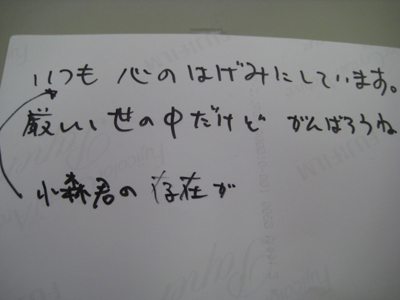 いつも 心のはげみにしています。
厳しい世の中だけど がんばろうね
小森君の存在が